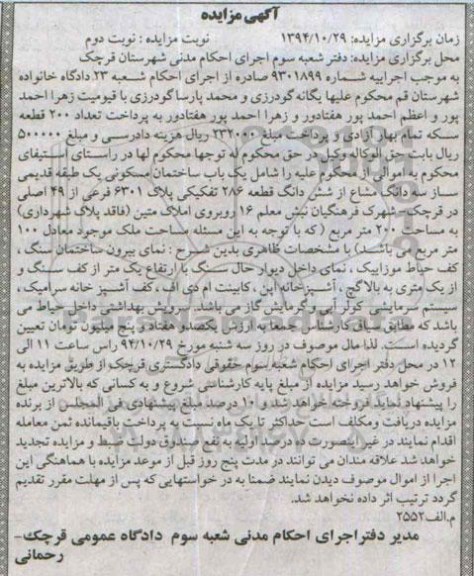 آگهی مزایده
زمان برگزاری مزایده: ۱۳۹۴/۱۰/۲۹ نوبت مزایده : نوبت دوم
محل برگزاری مزایده: دفتر شعبه سوم اجرای احکام مدنی شهرستان قرچک
به موجب اجراییه شماره ۹۳۰۱۸۹۹ صادره از اجرای احکام شعبه ۲۳ دادگاه خانواده
شهرستان قم محکوم علیها یگانه گودرزی و محمد پارسا گودرزی با قیومیت زهرا احمد
پور و اعظم احمد پور هفتادور و زهرا احمد پور هفتادور به پرداخت تعداد ۲۰۰ قطعه
سکه تمام بهار آزادی و پرداخت مبلغ ۲۳۲۰۰۰ ریال هزینه دادرسی و مبلغ ۵۰۰۰۰۰
ریال بابت حق الوکاله وکیل در حق محکوم له توجها محکوم لها در راستای استیفای
محکوم به اموالی از محکوم علیه را شامل یک باب ساختمان مسکونی یک طبقه قدیمی
ساز سه دانگ مشاع از شش دانگ قطعه ۲۸۶ تفکیکی پلاک ۶۳۰۱ فرعی از ۴۹ اصلی
در قرچک- شهرک فرهنگیان نبش معلم ۱۶ روبروی املاک متین (فاقد پلاک شهرداری)
به مساحت ۲۰۰ متر مربع ( که با توجه به این مسئله مساحت ملک موجود معادل ۱۰۰
متر مربع می باشد) با مشخصات ظاهری بدین شرح : نمای بیرون ساختمان سنگ ،
کف حیاط موزاییک ، نمای داخل دیوار حال سنگ با ارتفاع یک متر از کف سنگ و
از یک متری به بالا گچ ، آشپزخانه اپن ، کابینت ام دی اف ، کف آشپز خانه سرامیک ،
سیستم سرمایشی کولر آبی و گرمایش گاز می باشد ، سرویش بهداشتی داخل حیاط می
باشد که مطابق سیاق کارشناسی جمعا به ارزش یکصد و هفتاد و پنج میلیون تومان تعیین
گردیده است. لذا مال موصوف در روز سه شنبه مورخ ۹۴/۱۰/۲۹ راس ساعت ۱۱ الی
۱۲ در محل دفتر اجرای احکام شعبه سوم حقوقی دادگستری قرچک از طریق مزایده به
فروش خواهد رسید مزایده از مبلغ پایه کارشناسی شروع و به کسانی که بالاترین مبلغ
را پیشنهاد نماید فروخته خواهد شد و ۱۰ درصد مبلغ پیشنهادی فی المجلس از برنده
مزایده دریافت و مکلف است حداکثر تا یک ماه نسبت به پرداخت باقیمانده ثمن معامله
اقدام نمایند در غیر اینصورت ده درصد اولیه به نفع صندوق دولت ضبط و مزایده تجدید
خواهد شد علاقه مندان می توانند در مدت پنج روز قبل از موعد مزایده با هماهنگی این
اجرا از اموال موصوف دیدن نمایند ضمنا به در خواستهایی که پس از مهلت مقرر تقدیم
گردد ترتیب اثر داده نخواهد شد.
م.الف۲۵۵۲
مدیر دفتر اجرای احکام مدنی شعبه سوم دادگاه عمومی قرچک-
رحمانی